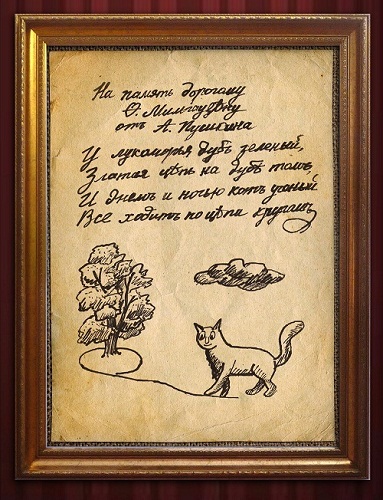 На память дорогому
Ѳ. Мимоуѣку
отъ А. Пушкина
У лукоморья дубъ зеленый,
Златая цѣпь на дубѣ томъ
И днемъ и ночью котъ ученый
Все ходитъ по цѣпи кругомъ